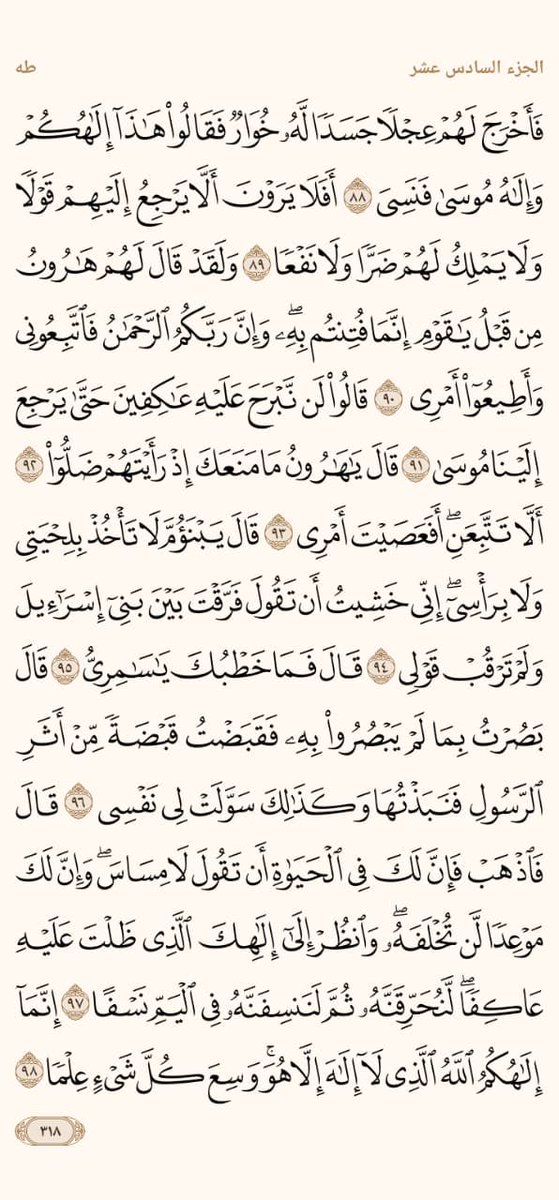 الجزء السادس عشر
طه
فَأَخْرَجَ لَهُمْ عِجْلًا جَسَدًا لَّهُۥ خُوَارٌ فَقَالُوا۟ هَٰذَآ إِلَٰهُكُمْ
وَإِلَٰهُ مُوسَىٰ فَنَسِىَ ٨٨ أَفَلَا يَرَوْنَ أَلَّا يَرْجِعُ إِلَيْهِمْ قَوْلًا
وَلَا يَمْلِكُ لَهُمْ ضَرًّا وَلَا نَفْعًا ٨٩ وَلَقَدْ قَالَ لَهُمْ هَٰرُونُ
مِن قَبْلُ يَٰقَوْمِ إِنَّمَا فُتِنتُم بِهِۦۖ وَإِنَّ رَبَّكُمُ ٱلرَّحْمَٰنُ فَٱتَّبِعُونِى
وَأَطِيعُوٓا۟ أَمْرِى ٩٠ قَالُوا۟ لَن نَّبْرَحَ عَلَيْهِ عَٰكِفِينَ حَتَّىٰ يَرْجِعَ
إِلَيْنَا مُوسَىٰ ٩١ قَالَ يَٰهَٰرُونُ مَا مَنَعَكَ إِذْ رَأَيْتَهُمْ ضَلُّوٓا۟ ٩٢
أَلَّا تَتَّبِعَنِۖ أَفَعَصَيْتَ أَمْرِى ٩٣ قَالَ يَبْنَؤُمَّ لَا تَأْخُذْ بِلِحْيَتِى
وَلَا بِرَأْسِىٓۖ إِنِّى خَشِيتُ أَن تَقُولَ فَرَّقْتَ بَيْنَ بَنِىٓ إِسْرَٰٓءِيلَ
وَلَمْ تَرْقُبْ قَوْلِى ٩٤ قَالَ فَمَا خَطْبُكَ يَٰسَٰمِرِىُّ ٩٥ قَالَ
بَصُرْتُ بِمَا لَمْ يَبْصُرُوا۟ بِهِۦ فَقَبَضْتُ قَبْضَةً مِّنْ أَثَرِ
ٱلرَّسُولِ فَنَبَذْتُهَا وَكَذَٰلِكَ سَوَّلَتْ لِى نَفْسِى ٩٦ قَالَ
فَٱذْهَبْ فَإِنَّ لَكَ فِى ٱلْحَيَوٰةِ أَن تَقُولَ لَا مِسَاسَۖ وَإِنَّ لَكَ
مَوْعِدًا لَّن تُخْلَفَهُۥۖ وَٱنظُرْ إِلَىٰٓ إِلَٰهِكَ ٱلَّذِى ظَلْتَ عَلَيْهِ
عَاكِفًاۖ لَّنُحَرِّقَنَّهُۥ ثُمَّ لَنَنسِفَنَّهُۥ فِى ٱلْيَمِّ نَسْفًا ٩٧ إِنَّمَآ
إِلَٰهُكُمُ ٱللَّهُ ٱلَّذِى لَآ إِلَٰهَ إِلَّا هُوَۚ وَسِعَ كُلَّ شَىْءٍ عِلْمًا ٩٨
٣١٨